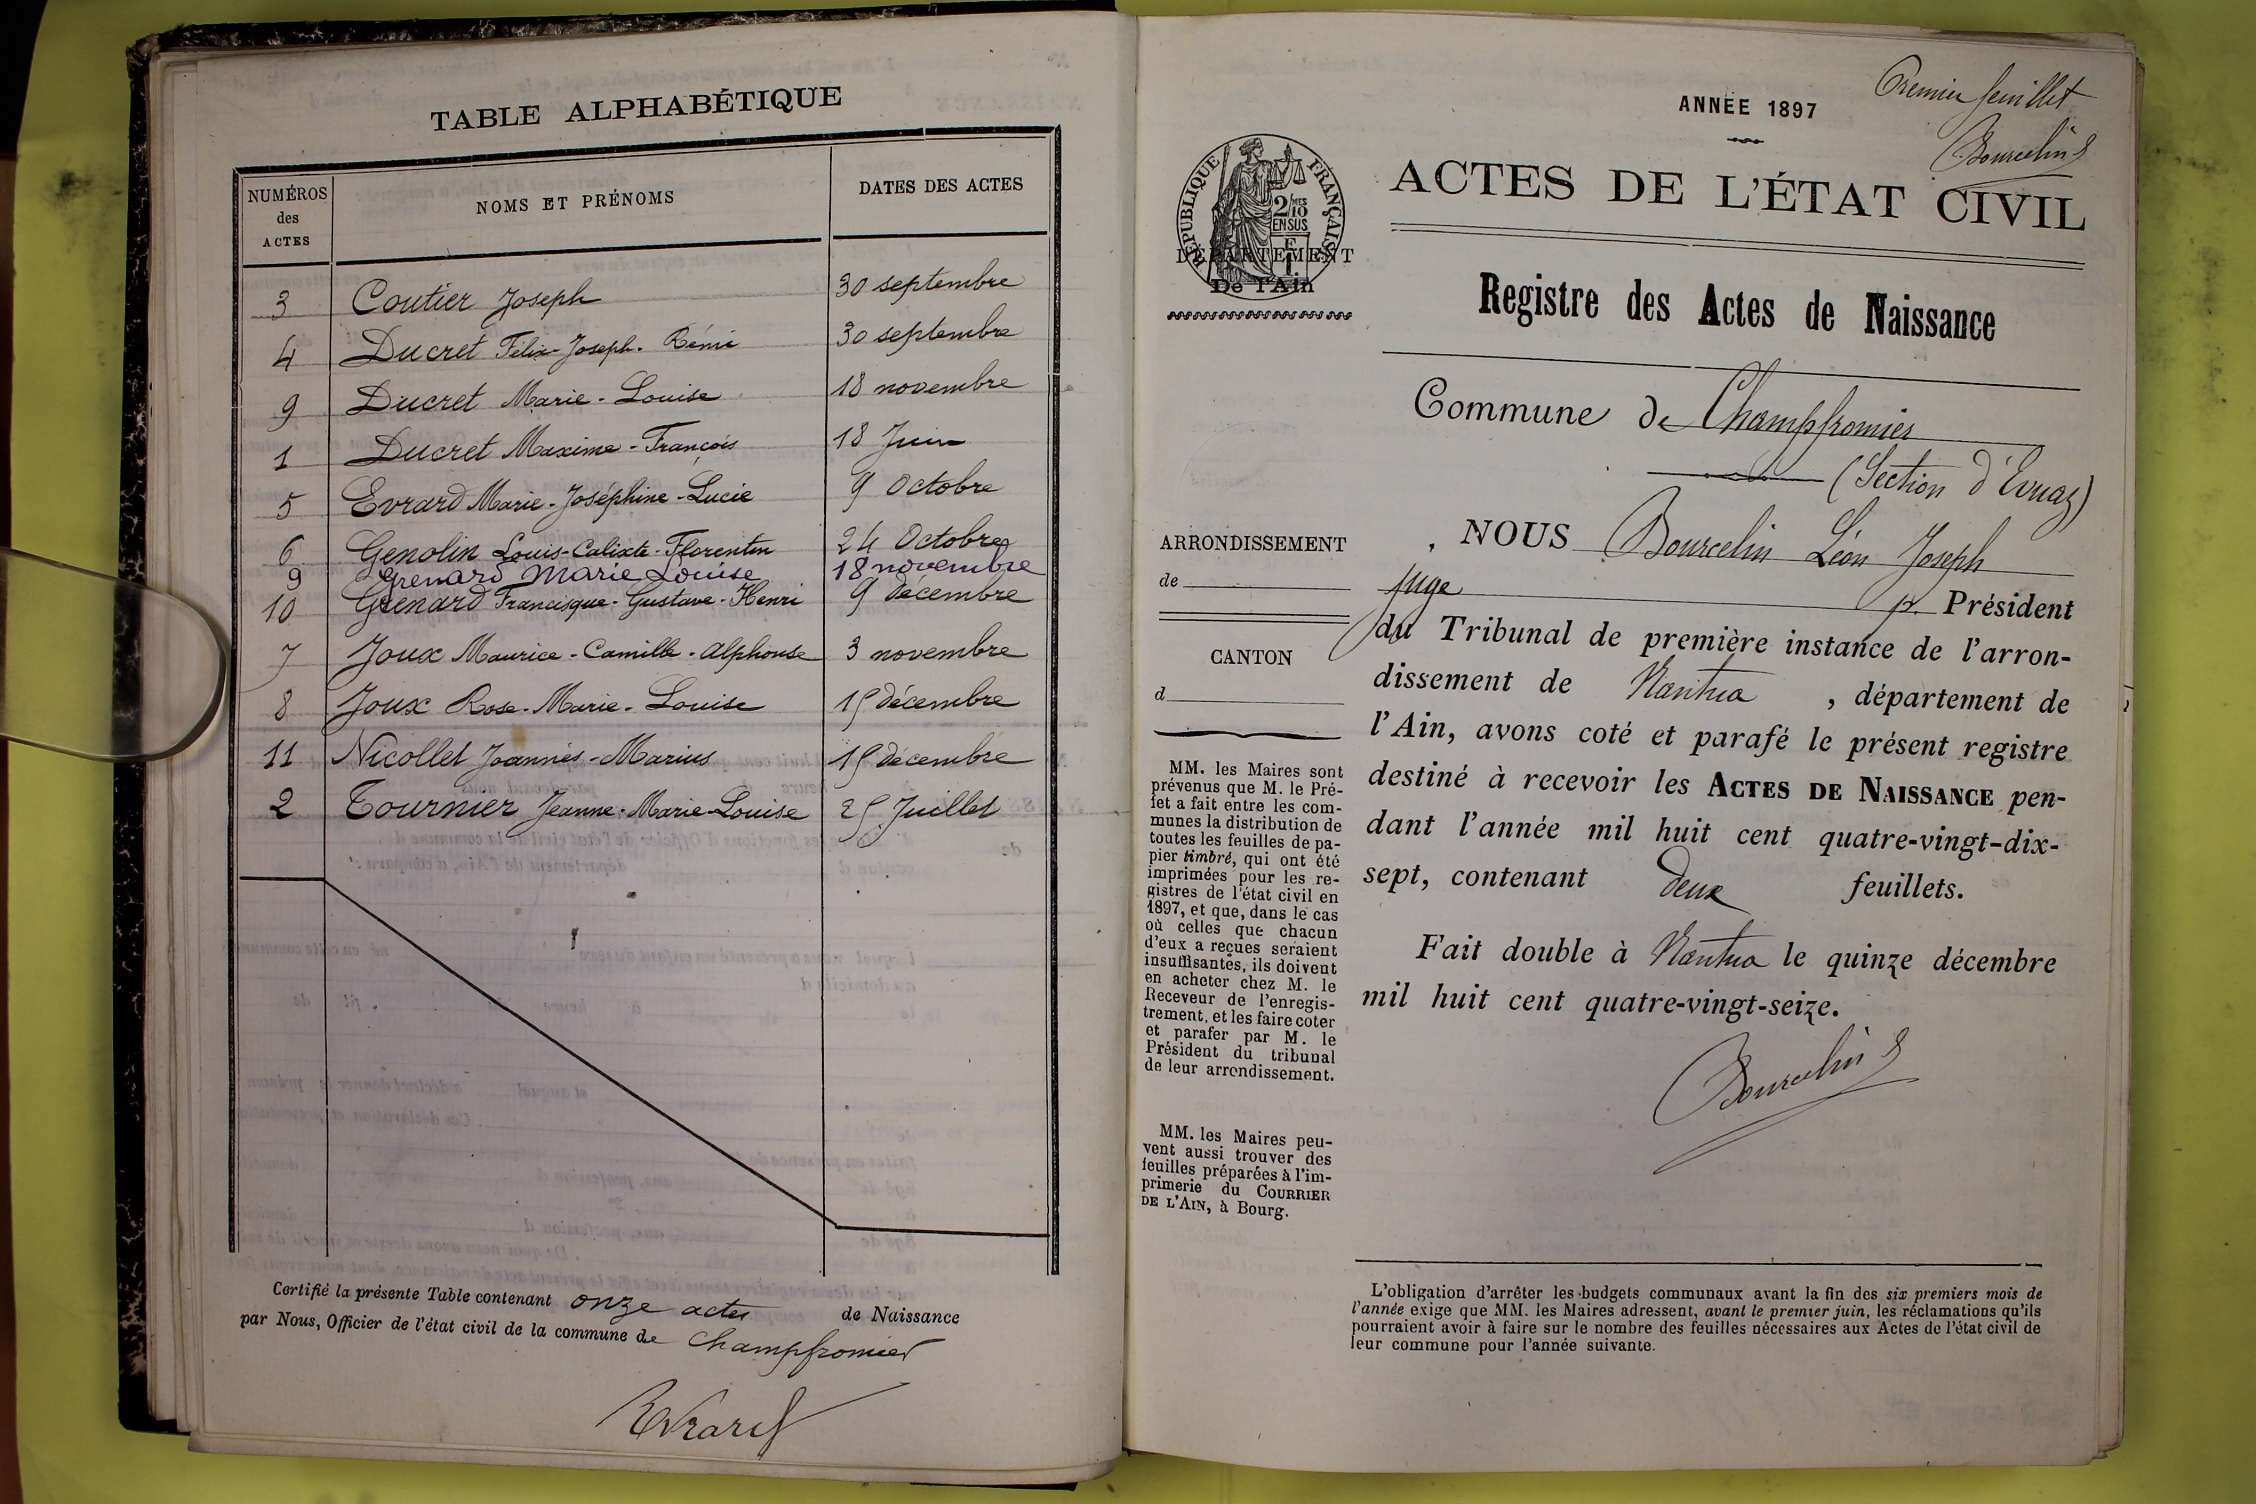 TABLE ALPHABÉTIQUE
NUMÉROS des ACTES
NOMS ET PRÉNOMS
DATES DES ACTES
3 Coutier Joseph 30 septembre
4 Ducret Félix-Joseph-Rémi 30 septembre
9 Ducret Marie-Louise 18 novembre
1 Ducret Maxime-François 18 Juin
5 Evrard Marie-Joséphine-Lucie 9 Octobre
6 Genolin Louis-Calixte-Florentin 24 Octobre
9 Grenard Marie Louise 18 novembre
10 Grenard Francisque-Gustave-Henri 9 décembre
7 Joux Maurice-Camille-Alphonse 3 novembre
8 Joux Rose-Marie-Louise 15 décembre
11 Nicollet Joannès-Marius 15 décembre
2 Tournier Jeanne-Marie-Louise 25 Juillet
Certifié la présente Table contenant onze actes de Naissance
par Nous, Officier de l'état civil de la commune de Champfromier
Evrard
Premier feuillet
Bourcelin
ANNÉE 1897
ACTES DE L'ÉTAT CIVIL
RÉPUBLIQUE FRANÇAISE
2/10 MES
EN SUS
DÉPARTEMENT
De l'Ain
Registre des Actes de Naissance
Commune de Champfromier
(Section d'Evuaz)
ARRONDISSEMENT
de
CANTON
d
MM. les Maires sont
prévenus que M. le Pré-
fet a fait entre les com-
munes la distribution de
toutes les feuilles de pa-
pier timbré, qui ont été
imprimées pour les re-
gistres de l'état civil en
1897, et que, dans le cas
où celles que chacun
d'eux a reçues seraient
insuffisantes, ils doivent
en acheter chez M. le
Receveur de l'enregis-
trement, et les faire coter
et parafer par M. le
Président du tribunal
de leur arrondissement.
MM. les Maires peu-
vent aussi trouver des
feuilles préparées à l'im-
primerie du COURRIER
DE L'AIN, à Bourg.
, NOUS Bourcelin Léon Joseph
juge pr. Président
du Tribunal de première instance de l'arron-
dissement de Nantua , département de
l'Ain, avons coté et parafé le présent registre
destiné à recevoir les ACTES DE NAISSANCE pen-
dant l'année mil huit cent quatre-vingt-dix-
sept, contenant deux feuillets.
Fait double à Nantua le quinze décembre
mil huit cent quatre-vingt-seize.
Bourcelin
L'obligation d'arrêter les budgets communaux avant la fin des six premiers mois de
l'année exige que MM. les Maires adressent, avant le premier juin, les réclamations qu'ils
pourraient avoir à faire sur le nombre des feuilles nécessaires aux Actes de l'état civil de
leur commune pour l'année suivante.